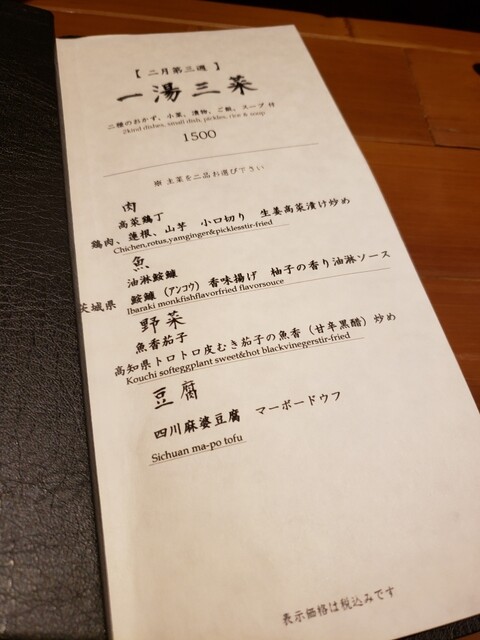 【 二月第三週 】
一湯三菜
二種のおかず、小菜、漬物、ご飯、スープ 付
2kind dishes, small dish, pickles, rice & soup
1500
※ 主菜を二品お選び下さい
肉
高菜鶏丁
鶏肉、蓮根、山芋 小口切り 生姜高菜漬け炒め
Chichen,rotus,yamginger&picklesstir-fried
魚
油淋鮟鱇
茨城県 鮟鱇（アンコウ）香味揚げ 柚子の香り油淋ソース
Ibaraki monkfishflavorfried flavorsouce
野菜
魚香茄子
高知県トロトロ皮むき茄子の魚香（甘辛黒酢）炒め
Kouchi softeggplant sweet&hot blackvinegerstir-fried
豆腐
四川麻婆豆腐 マーボードウフ
Sichuan ma-po tofu
表示価格は税込みです